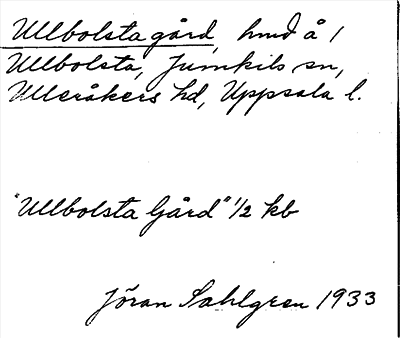 Ullbolsta gård, hmd å 1
Ullbolsta, Jumkils sn,
Ulleråkers hd, Uppsala l.
"Ullbolsta Gård" 1/2 kb
Jöran Sahlgren 1933